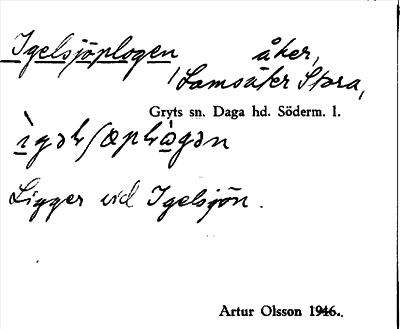 Igelsjöplogen, åker,
Lamsäter Stora,
Gryts sn. Daga hd. Söderm. l.
Ligger vid Igelsjön.
Artur Olsson 1946.